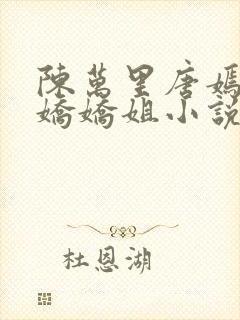 陳萬里唐嫣
嬌嬌姐小說
杜恩湖